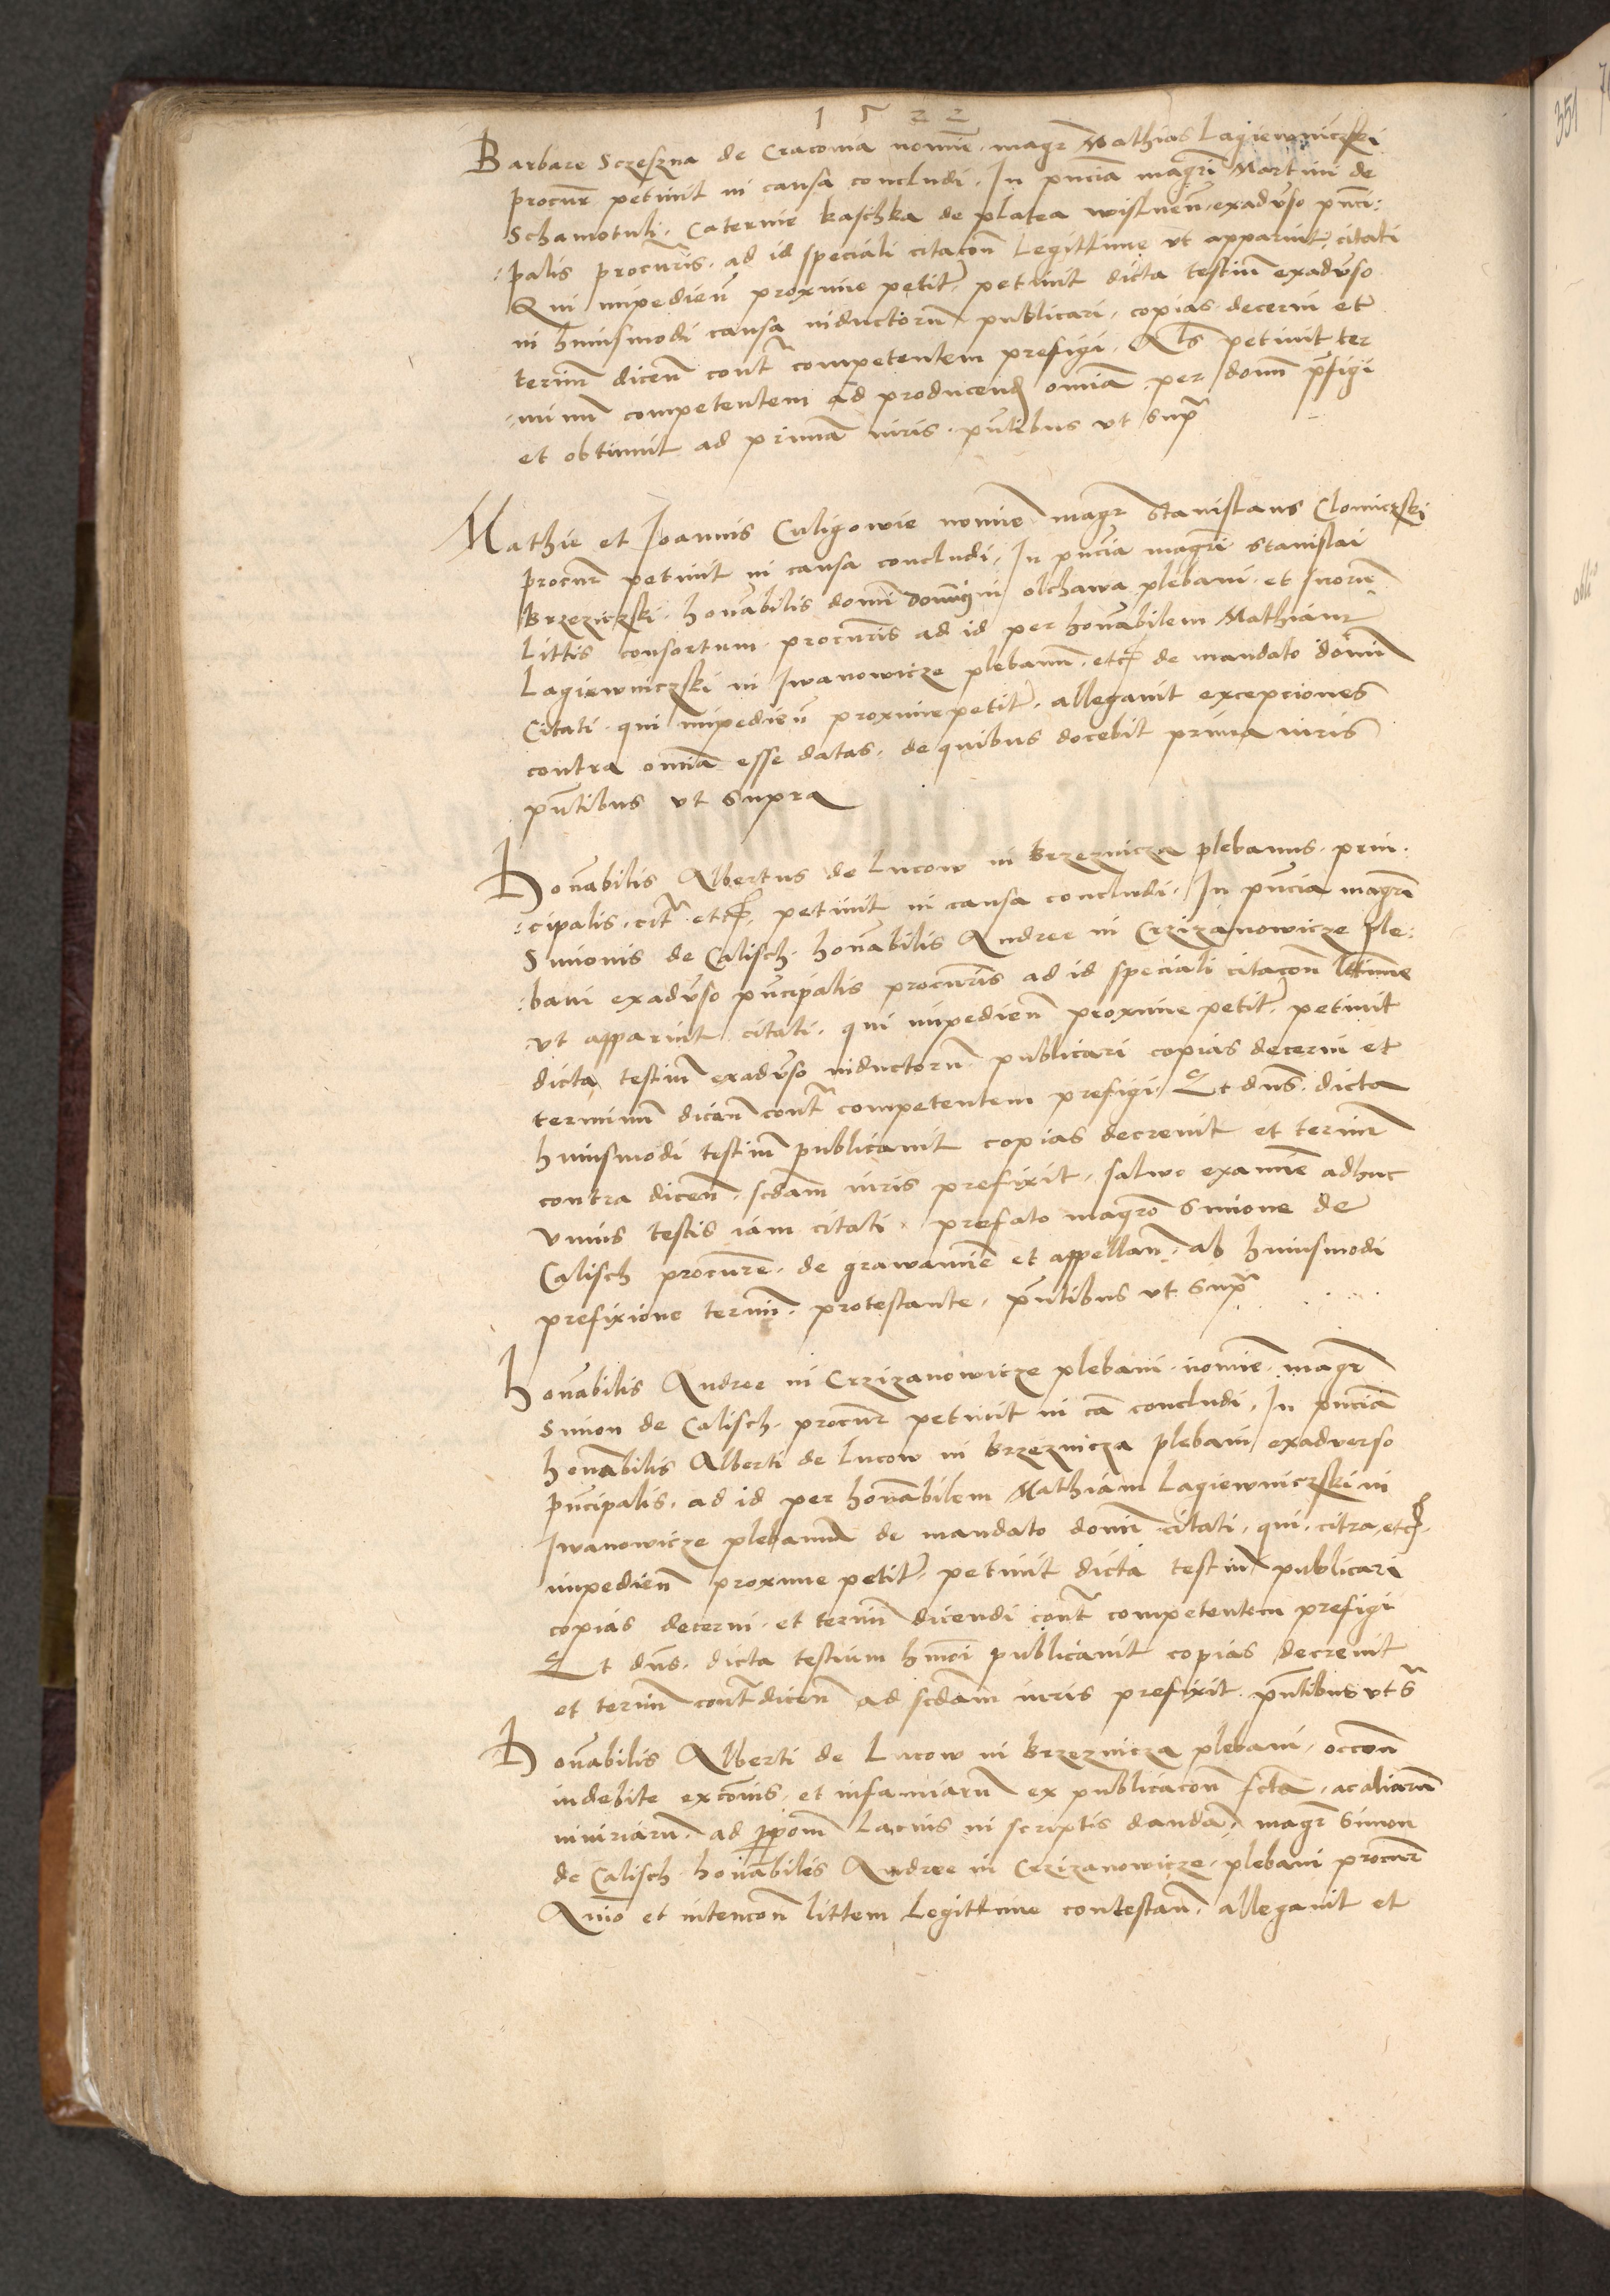 1522
Barbare Sczeszna de Cracovia nomine magr Mathias Lagiewniczki
procur petivit in causa concludi. In pnciam magri Martini de
Schamotuli. Caterine kaschka de platea wislnen. exadverso pnci-
palis procuris. ad id speciali citacon Legittime vt apparuit citati
Qui impedien proxime petitr petivit dicta testium exadverso
in huiusmodi causa inductorum publicari. copias decerni et
termin dicen contra competentem prefigi. Als petivit ter
minum competentem ad producend omnia per domn prefigi
et obtinuit ad primam iuris. pntibus vt supra
Mathie et Joannis Culigowie nomine magr Stanislaus Clomiczski
procur petivit in causa concludi. In pncia magri stanislai
Brzeziczski. honabilis domni Dominici in olchawa plebani et suorum
Littis consortum procuris ad id per honabilem Mathiam
Lagiewniczki in Iwanowicze plebanum etc de mandato domni
Citati qui impedien proxime petitr. allegavit excepciones
contra omnia esse datas. de quibus docebit prima iuris
pntibus vt supra
Honabilis Albertus de Lucow in Brzeznicza plebanus prin-
cipalis. citra etc. petivit in causa concludi. In pncia magri
Simonis de Calisch. honabilis Andree in Crzizanowicze ple-
bani exadverso pncipalis procuris ad id speciali citacon lttime
vt apparuit citati. qui impedien proxime petitr. petivit
dicta testium exadverso inductorum publicari copias decerni et
terminum dicen contra competentem prefigi. Et dns. dicta
huiusmodi testium publicavit copias decrevit et termin
contra dicen. scdam iuris prefixit. salvo examine adhuc
vnius testis iam citati. prefato magro Simone de
Calisch procure. de grawamine et appellan. ab huiusmodi
prefixione termin. protestante. pntibus vt supra
honabilis Andree in Crzizanowicze plebani nomine magr
Simon de Calisch. procur petivit in ca concludi. In pnciam
honabilis Alberti de Lucow in Brzeznicza plebani exadverso
pncipalis. ad id per honabilem Mathiam Lagiewniczski in
Iwanowicze plebanum de mandato domni citati. qui. citra etc.
impedien proxime petitr. petivit dicta testium publicari
copias decerni. et termin dicendi contra competentem prefigi
Et dns. dicta testium hmoi publicavit copias decrevit
et termin contra dicen ad scdam iuris prefixit. pntibus vt s
Honabilis Alberti de Lucow in Brzeznicza plebani. occon
indebite excoinis. et infamiarum ex publicacon fcta. ac aliarum
iniuriarum. ad ppom Lacius in scriptis dandam magr Simon
de Calisch honabiles Andree in Crzizanowicze plebani procur
Animo et intencon littem Legittime contestan. allegavit et
351